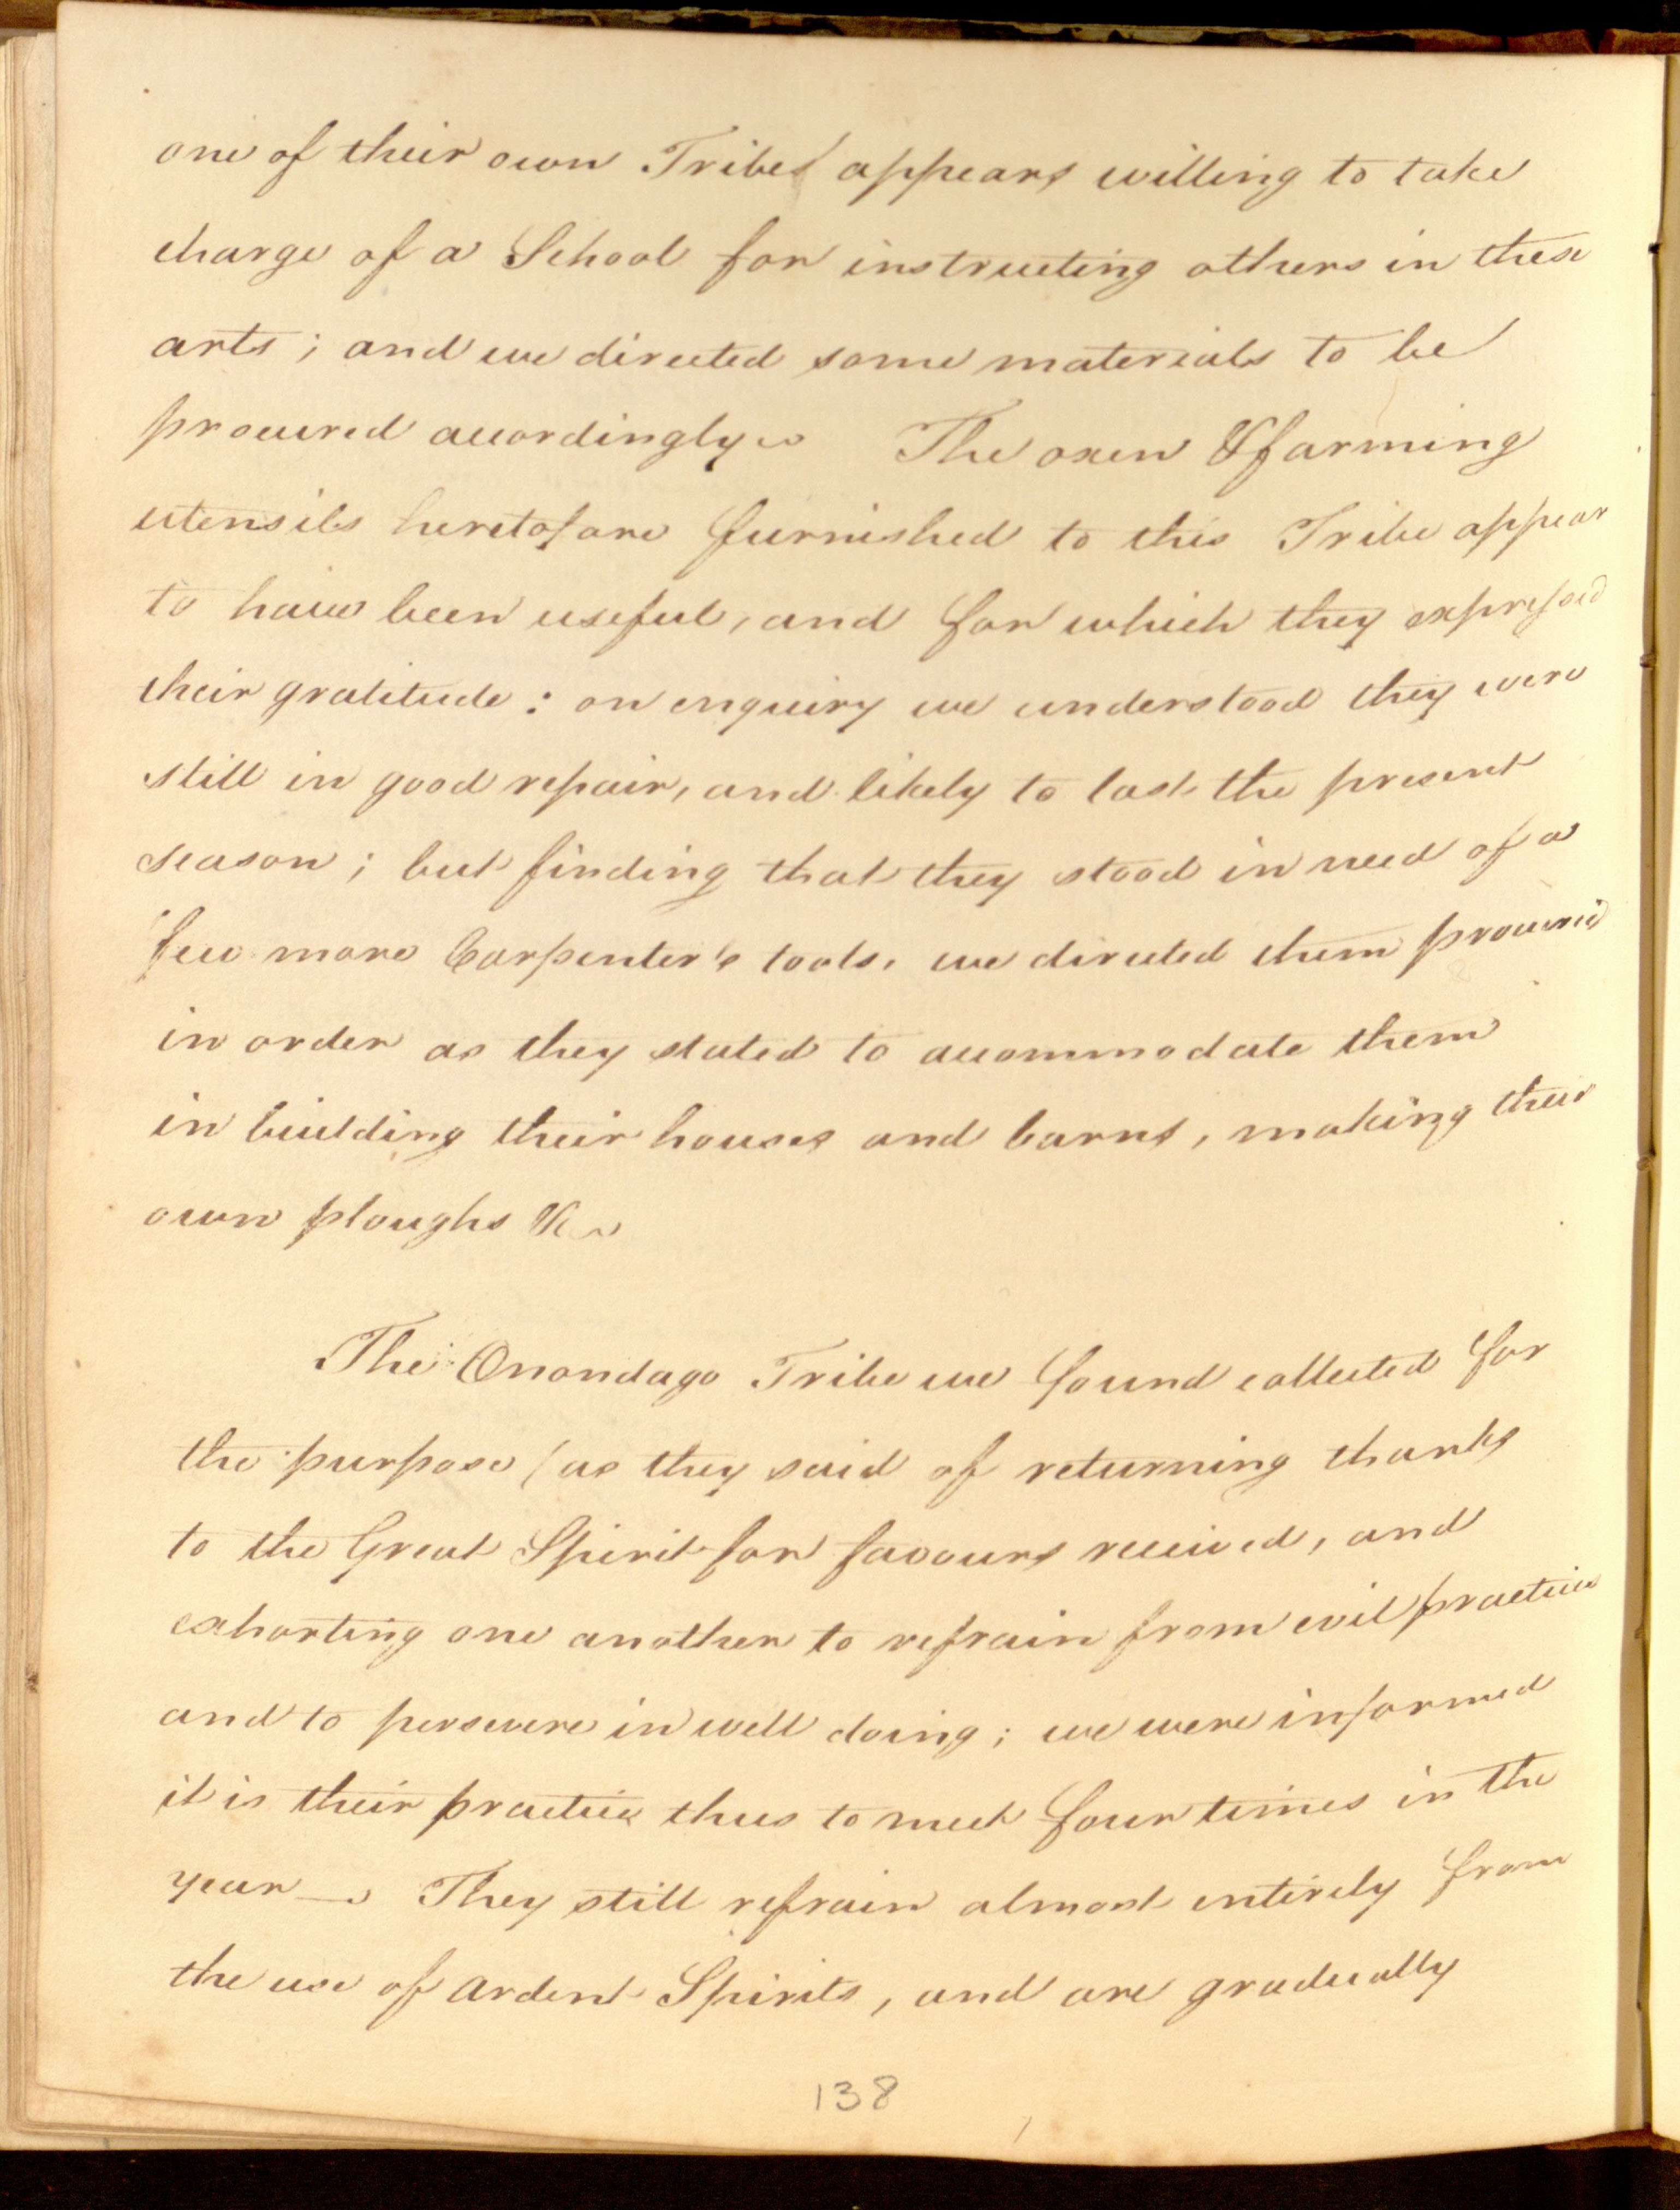 one of their own Tribe appears willing to take
charge of a School for instructing others in these
arts; and we directed some materials to be
procured accordingly The oxen & farming
utensils heretofore furnished to this Tribe appear
to have been useful, and for which they expressed
their gratitude: on enquiry we understood they were
still in good repair, and likely to last the present
season; but finding that they stood in need of a
few more Carpenter's tools, we directed them procured
in order as they stated to accommodate them
in building their houses and barns, making their
own ploughs &c
The Onondago Tribe we found collected for
the purpose (as they said of returning thanks
to the Great Spirit for favours received, and
exhorting one another to refrain from evil practices
and to persevere in well doing; we were informed
it is their practice thus to meet four times in the
year — They still refrain almost entirely from
the use of ardent Spirits, and are gradually
138